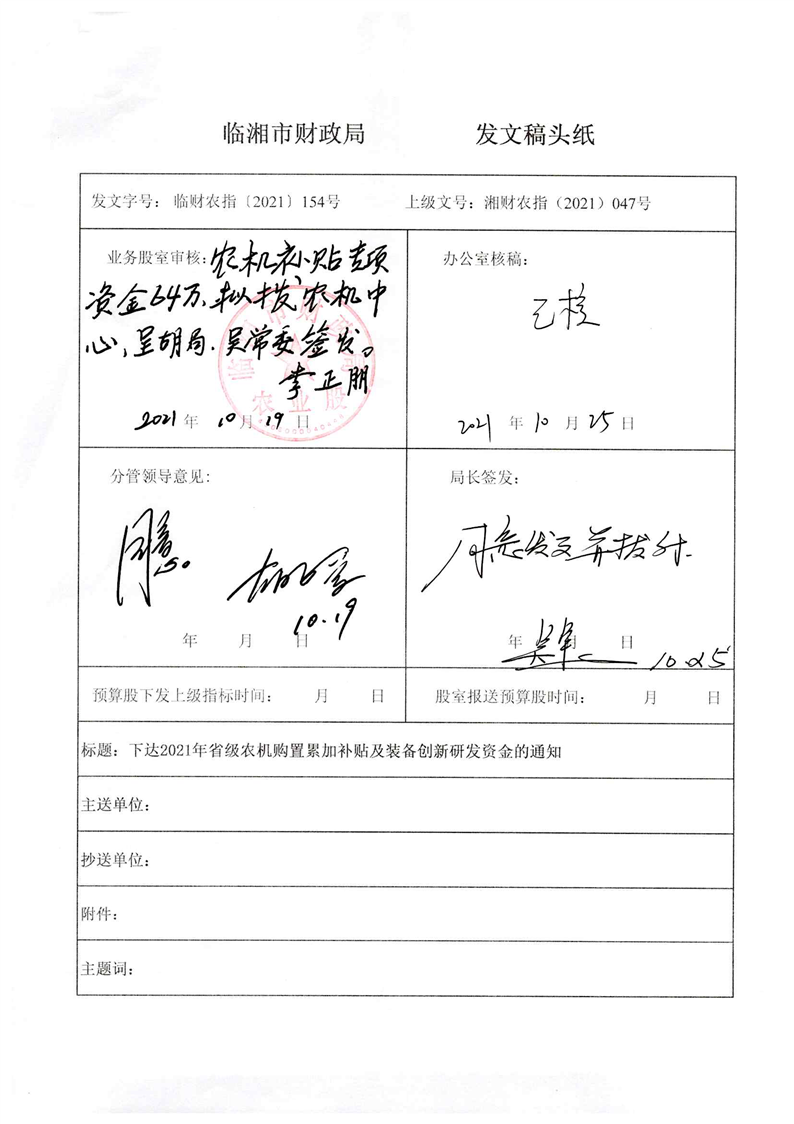 临湘市财政局 发文稿头纸
发文字号： 临财农指〔2021〕154号 上级文号：湘财农指（2021）047号
业务股室审核：农机补贴专项
资金64万，拟拨农机中
心，呈胡局、吴常委签发。
李正朋
农业股
2021 年 10 月 19 日
办公室核稿：
已核
2021 年 10 月 25 日
分管领导意见：
同意。
10.19
年 月 日
局长签发：
同意发文并拨付.
年 月 日
10.25
预算股下发上级指标时间： 月 日 股室报送预算股时间： 月 日
标题：下达2021年省级农机购置累加补贴及装备创新研发资金的通知
主送单位：
抄送单位：
附件：
主题词：